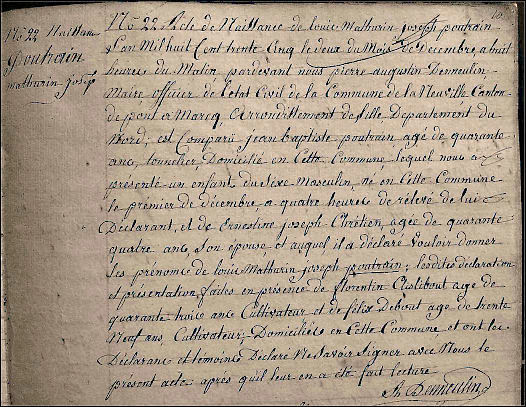 No 22 Naissance
Poutrain
mathurin Josep
No 22 Acte de Naissance de louis Mathurin joseph poutrain
L'an Mil huit Cent trente Cinq le deux du Mois de Decembre a huit
heures du Matin pardevant nous pierre augustin Demeulin
Maire officier de l'etat Civil de la Commune de la Neuville Canton
de pont a Marcq Arrondissement de lille Departement du
Nord; est Comparu jean baptiste poutrain agé de quarante
ans, tonnelier, Domicilié en Cette Commune, lequel nous a
presenté un enfant du Sexe Masculin, né en Cette Commune
le premier de décembre a quatre heures de rélevé de lui
Déclarant, et de Ernestine joseph Chrétien, agée de quarante
quatre ans Son épouse, et auquel il a déclaré Vouloir donner
les prénoms de louis Mathurin joseph poutrain; lesdites déclaration
et présentation faites en présence de florentin age de
quarante trois ans Cultivateur et de félix Debout age de trente
Neuf ans, Cultivateur, Domiciliés en Cette Commune et ont les
Déclarant et témoins Déclaré Ne Savoir Signer avec Nous le
present acte après qu'il leur en a été fait lecture
Demeulin